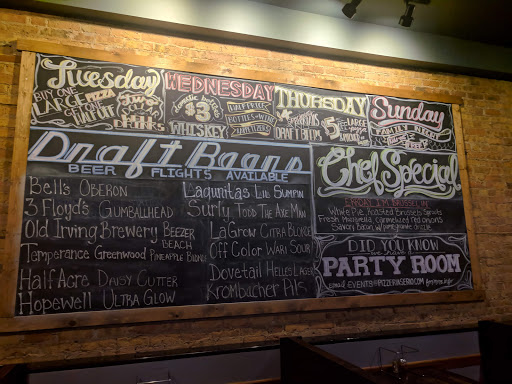 Tuesday
BUY ONE
LARGE PIZZA
DRINKS
WEDNESDAY
$3
WHISKEY
HALF PRICE
BOTTLES OF WINE
THURSDAY
DRAFT BEERS
$5
LARGE
Sunday
FAMILY
Draft Beers
BEER FLIGHTS AVAILABLE
Bell's OBERON
3 Floyd's GUMBALLHEAD
Old Irving Brewery BEEZER
BEACH
Temperance Greenwood PINEAPPLE BROWN
Half Acre DAISY CUTTER
Hopewell ULTRA GLOW
Lagunitas LIL SUMPIN
Surly TODD THE AXE MAN
LaGrow CITRA BLONDE
Off Color WARI SOUR
Dovetail HELLES LAGER
Krombacher PILS
Chef Special
White Pie, Roasted Brussels Sprouts
Fresh Mozzarella, Caramelized red onions
DID YOU KNOW
PARTY ROOM